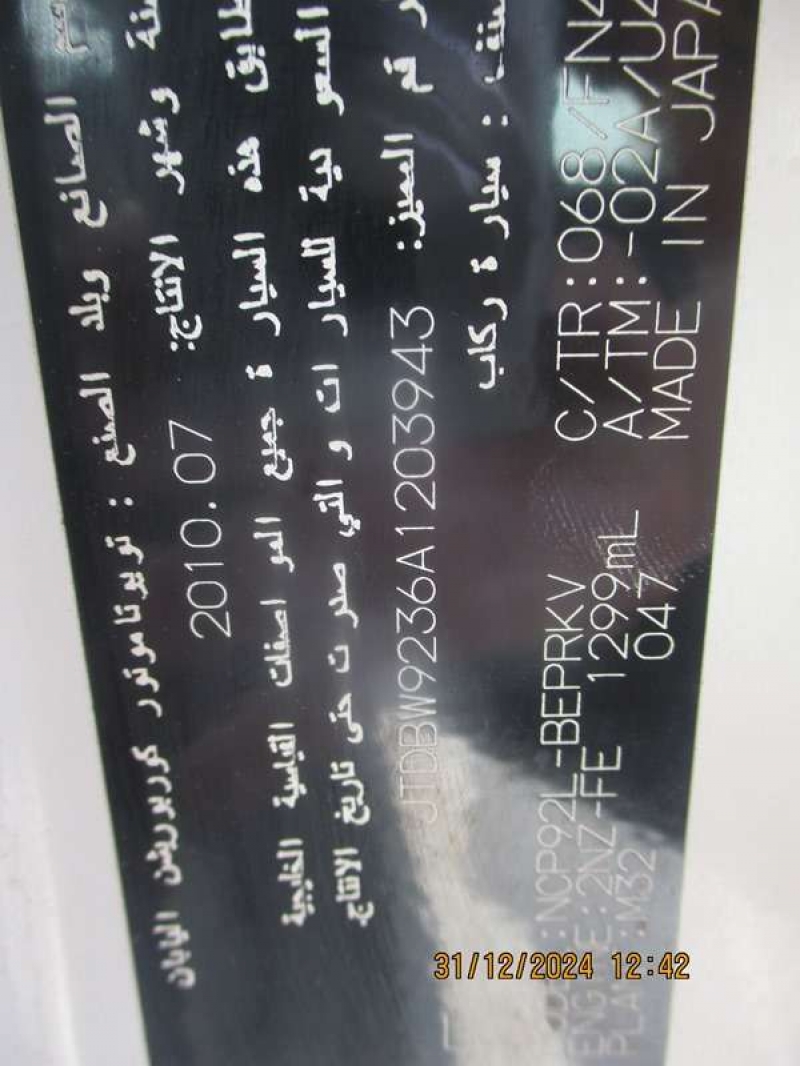 الصانع وبلد الصنع : تويوتا موتور كوربوريشن اليابان
سنة وشهر الانتاج: 2010.07
تطابق هذه السيارة جميع المواصفات القياسية الخليجية
السعودية للسيارات والتي صدرت حتى تاريخ الانتاج.
رقم المميز: JTDBW9236A1203943
سيارة ركاب
:NCP92L-BEPRKV C/TR:068/FN4
ENGINE:2NZ-FE 1299mL A/TM:-02A/U4
PLANT:M32 047 MADE IN JAPA
31/12/2024 12:42